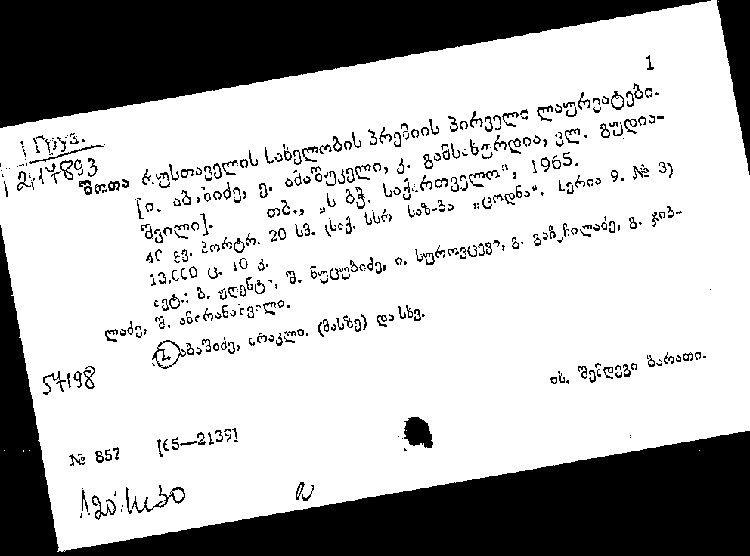 1
Груз.
2417893
შოთა რუსთაველის სახელობის პრემიის პირველი ლაურეატები.
[ი. აბაშიძე, ე. ამაშუკელი, კ. გამსახურდია, ვლ. გუდია-
შვილი]. თბ., „ს ბჭ. საქართველო“, 1965.
40 გვ. პორტრ. 20 სმ. (საქ. სსრ საზ-ბა „ცოდნა“. სერია 9. № 3)
10,000 ც. 10 კ.
ავტ.: ბ. ჟღენტი, შ. ნუცუბიძე, ი. სუროვცევი, გ. გაჩეჩილაძე, გ. ჯიბ-
ლაძე, შ. ამირანაშვილი.
1. აბაშიძე, ირაკლი. (მასზე) და სხვ.
57198
იხ. შემდეგი ბარათი.
№ 857 [65—2139]